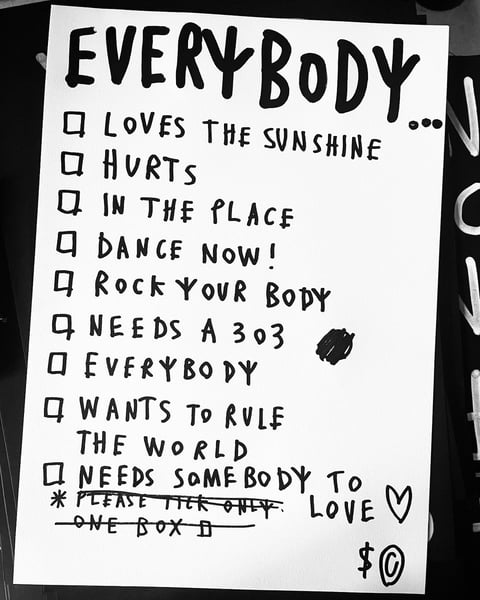 EVERYBODY...
☐ LOVES THE SUNSHINE
☐ HURTS
☐ IN THE PLACE
☐ DANCE NOW!
☐ ROCK YOUR BODY
☐ NEEDS A 303
☐ EVERYBODY
☐ WANTS TO RULE
THE WORLD
☐ NEEDS SOMEBODY TO
LOVE ♡
* PLEASE TICK ONLY
ONE BOX ☐
$ ©